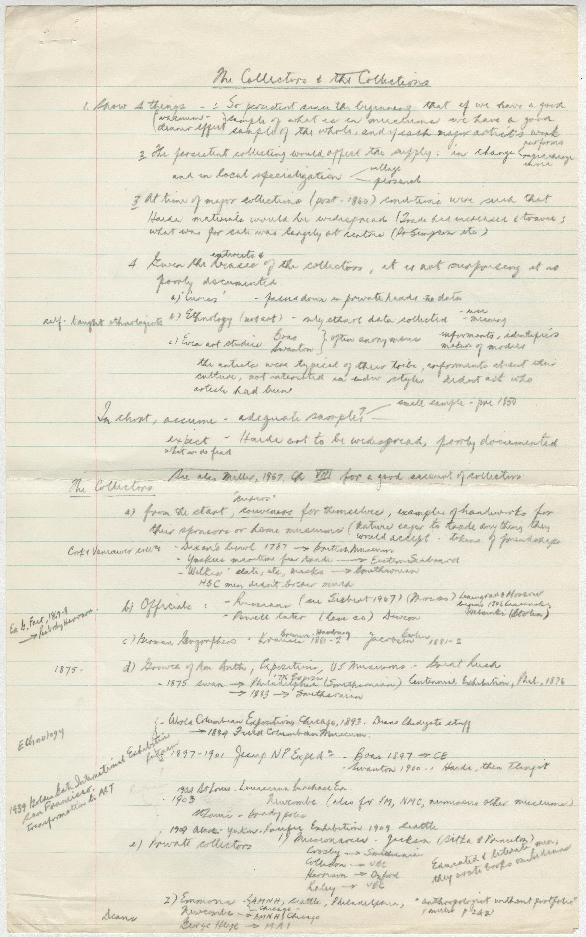 The Collectors & the Collections
1. Show 4 things - : So persistent since the beginning that if we have a good
sample of what is in museums we have a good
sample of the whole, and of each major artist's work
2 The persistent collecting would affect the supply : in change
and in local specialization
village
personal
3 At time of major collections (post-1860) conditions were such that
Haida materials would be widespread (Trade had increased & travel ;
what was for sale was largely at centre (Pt Simpson etc.)
4 Given the interests &
of the collectors, it is not surprising it is
poorly documented
a) 'Curios' - passed down in private hands no data
self-taught ethnologists b) Ethnology (not art) - only ethnol data collected - use
- meaning
c) Even art studies Boas
Swanton } often anonymous informants, identifiers
maker of models
the artists were typical of their tribe, informants about their
culture, not interested in indiv styles didnt ask who
artists had been
In short, assume - adequate sample?
small sample - pre 1850
expect - Haida art to be widespread, poorly documented
what we find
The Collectors See also Miller, 1967, Ch VIII for a good account of collectors
"curios"
a) from the start, souvenirs for themselves, examples of handiworks for
their sponsors or home museums (natives eager to trade anything they
would accept - tokens of friendship
Cook & Vancouver coll.ns - Dixon's bowl 1787 → British Museum
- Yankees maritime fur trade → Eastern Seaboard
- Wilkes' slate, etc, masks → Smithsonian
HBC men
b) Officials : - Russian (see Siebert 1967)
- Powell later (less so) Dawson
c) German Geographers - Krause 1881-2 Jacobsen 1881-2
Bremen
Berlin
1875 - d) Growth of Am Anth, Exposition, US Museums - Great Rush
- 1875 Swan → Philadelphia (Smithsonian) Centennial Exhibition, Phil. 1876
→ 1883 → Smithsonian
Ethnology
- World Columbian Exposition Chicago, 1893. Deans Skidgate stuff
→ 1894 Field Columbian Museum
1897-1901 Jesup NP Exped.n - Boas 1897 → CE
- Swanton 1900-1 Haida, then Tlingit
1939 Golden Gate International Exhibition
San Francisco.
transformation to ART
1904 St Louis - Louisiana Purchase Ex
- 1903 Newcombe (also for PM, NMC, numerous other museums)
1909 Alaska Yukon-Pacific Exhibition 1909 Seattle
e) Private collectors 1) Missionaries - Jackson (Sitka & Princeton)
Crosby → Smithsonian
Collison → UBC
Harrison → Oxford
Raley → UBC
Educated & literate men,
they wrote books on Indians
2) Emmons - AMNH, Seattle, Philadelphia, "anthropologist without portfolio"
Miller p 242
Deans Newcombe → Chicago
→ AMNH, Chicago
George Heye → MAI